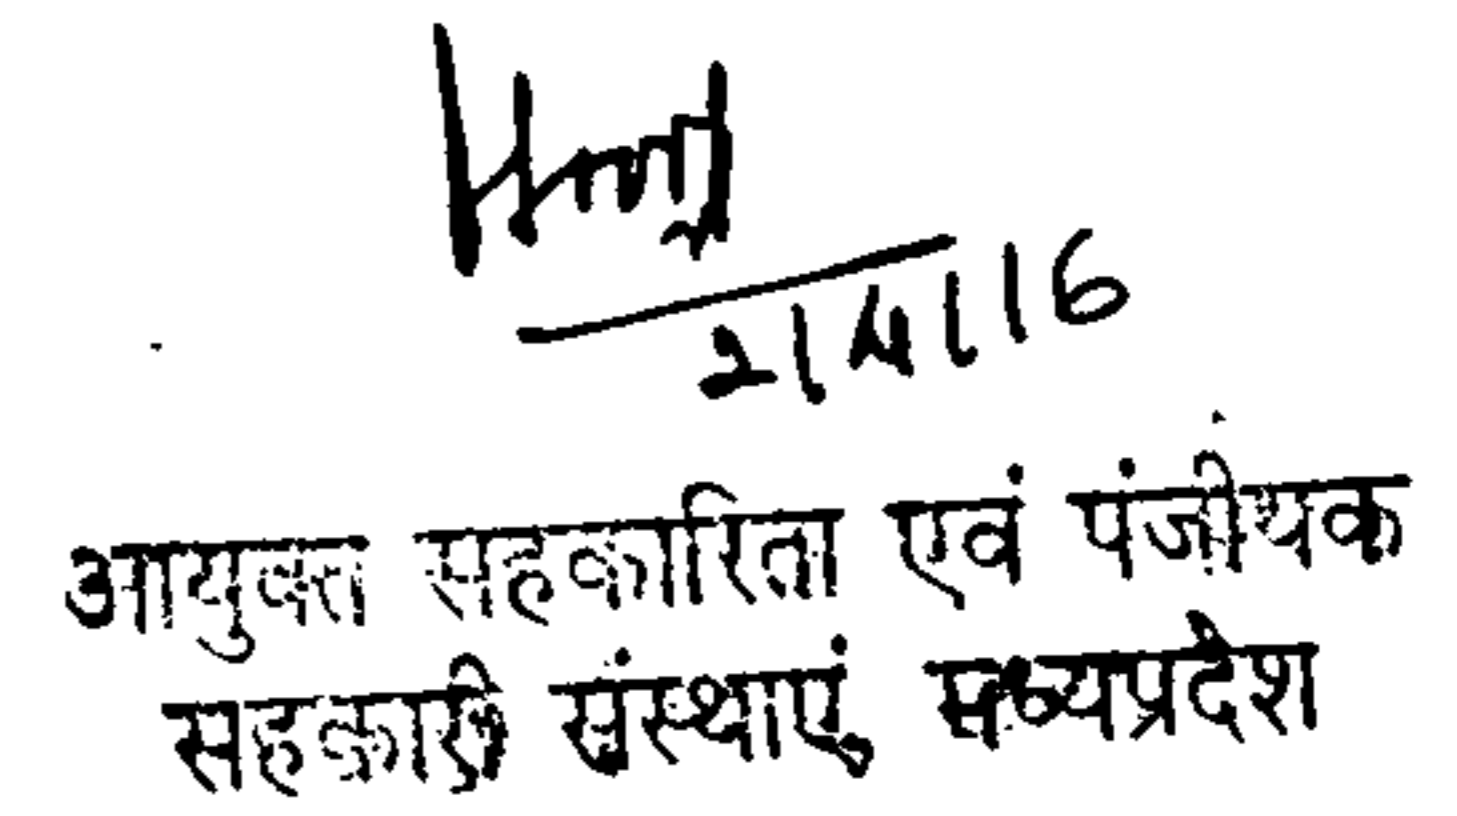 आयुक्त सहकारिता एवं पंजीयक
सहकारी संस्थाएं, मध्यप्रदेश